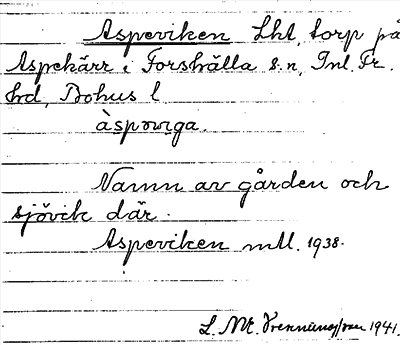 Aspeviken Lht, torp på
Aspekärr i Forshälla s.n, Inl. Fr.
hd, Bohus l.
àspəviga.
Namn av gården och
sjövik där.
Aspeviken mtl. 1938.
L. M. 1941.